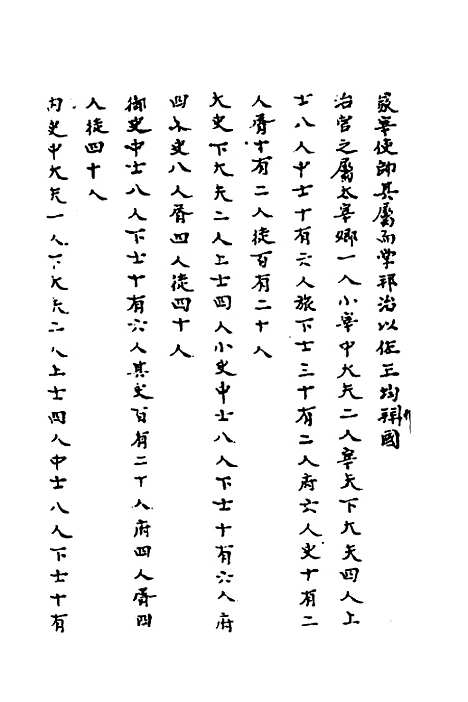 冢宰使帥其屬而掌邦治以佐王均邦國
治官之屬太宰卿一人小宰中大夫二人宰夫下大夫四人上
士八人中士十有六人旅下士三十有二人府六人史十有二
人胥十有二人徒百有二十人
大史下大夫二人上士四人小史中士八人下士十有六人府
四人史八人胥四人徒四十人
御史中士八人下士十有六人其史百有二十人府四人胥四
人徒四十人
內史中大夫一人下大夫二人上士四人中士八人下士十有